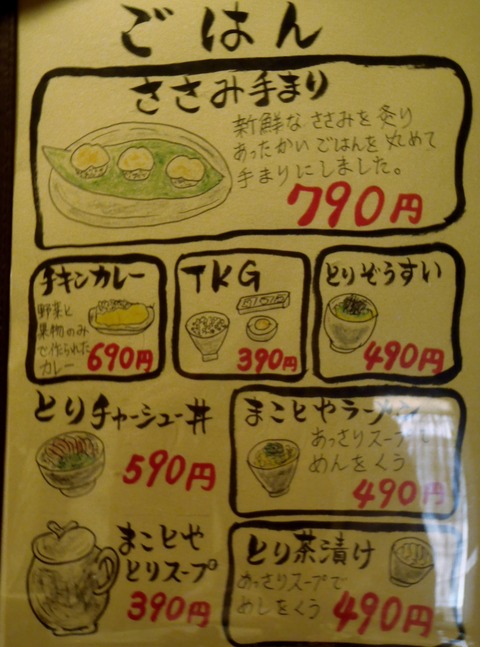 ごはん
ささみ手まり
新鮮な ささみを 炙り
あったかい ごはんを 丸めて
手まりにしました。
790円
チキンカレー
野菜と
果物のみ
で作られた
カレー
690円
TKG
390円
とりぞうすい
490円
とりチャーシュー丼
590円
まことやラーメン
あっさりスープで
めんをくう
490円
まことや
とりスープ
390円
とり茶漬け
あっさりスープで
めしをくう
490円